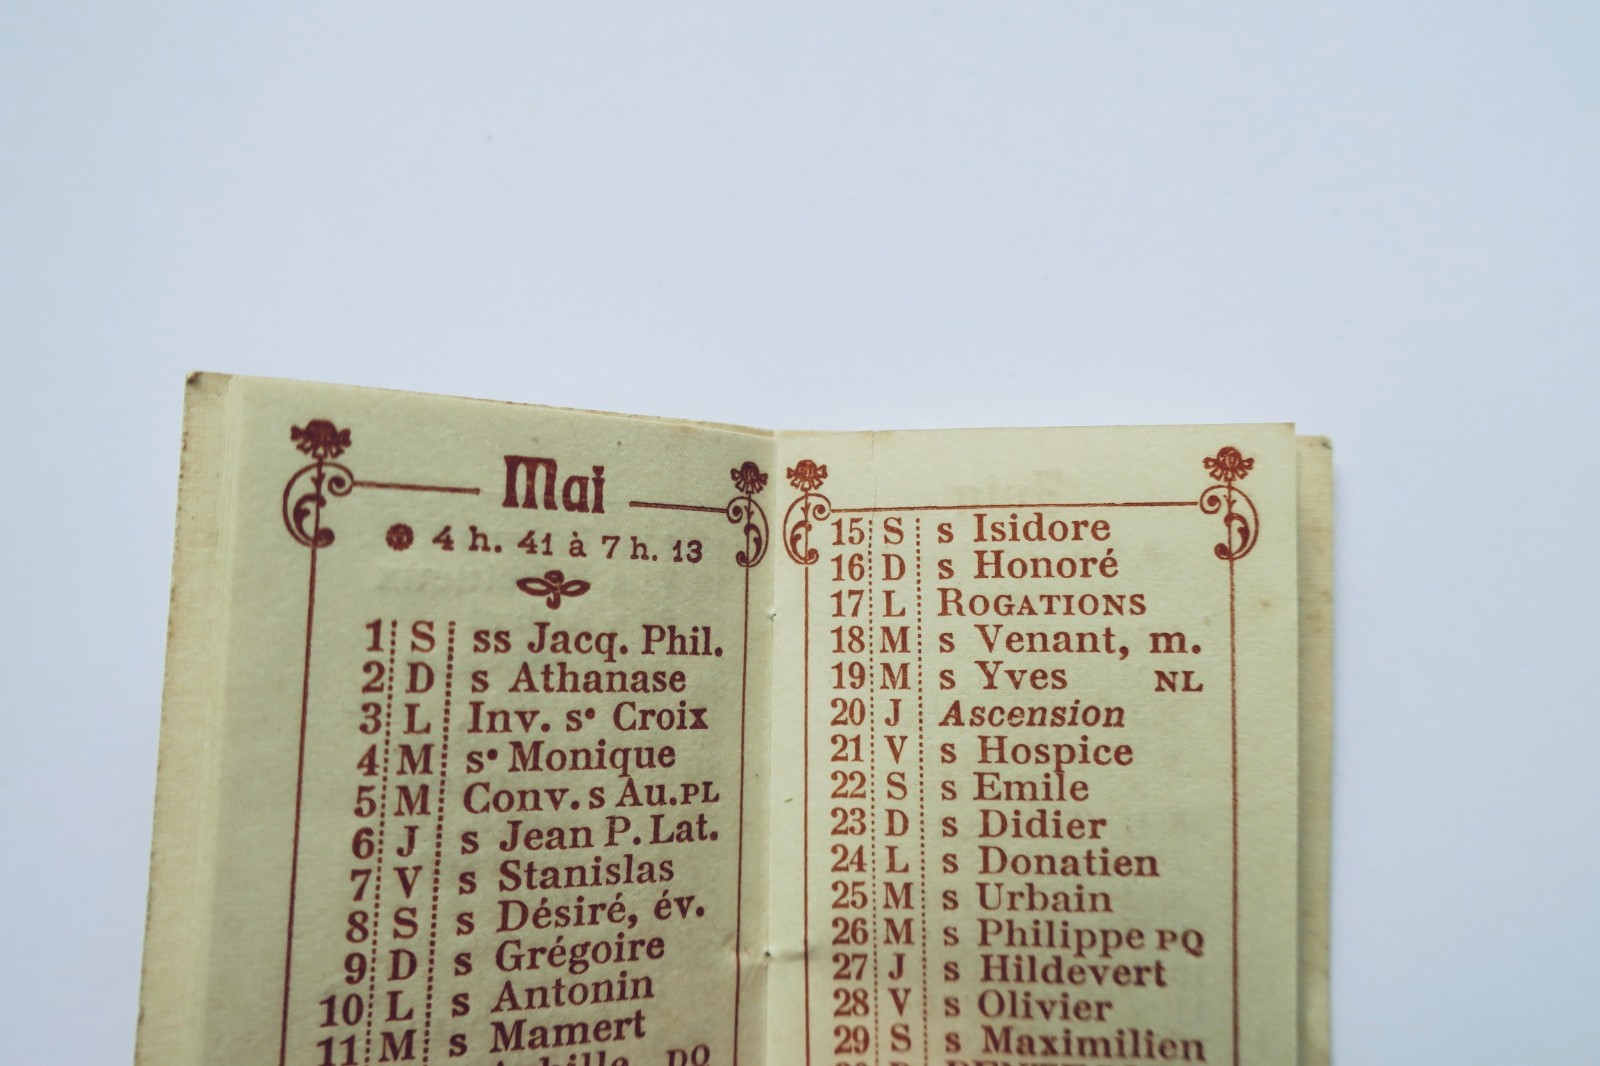 Mai
4 h. 41 à 7 h. 13
1 S ss Jacq. Phil.
2 D s Athanase
3 L Inv. sᵉ Croix
4 M sᵉ Monique
5 M Conv. s Au. PL
6 J s Jean P. Lat.
7 V s Stanislas
8 S s Désiré, év.
9 D s Grégoire
10 L s Antonin
11 M s Mamert
DQ
15 S s Isidore
16 D s Honoré
17 L ROGATIONS
18 M s Venant, m.
19 M s Yves NL
20 J Ascension
21 V s Hospice
22 S s Emile
23 D s Didier
24 L s Donatien
25 M s Urbain
26 M s Philippe PQ
27 J s Hildevert
28 V s Olivier
29 S s Maximilien